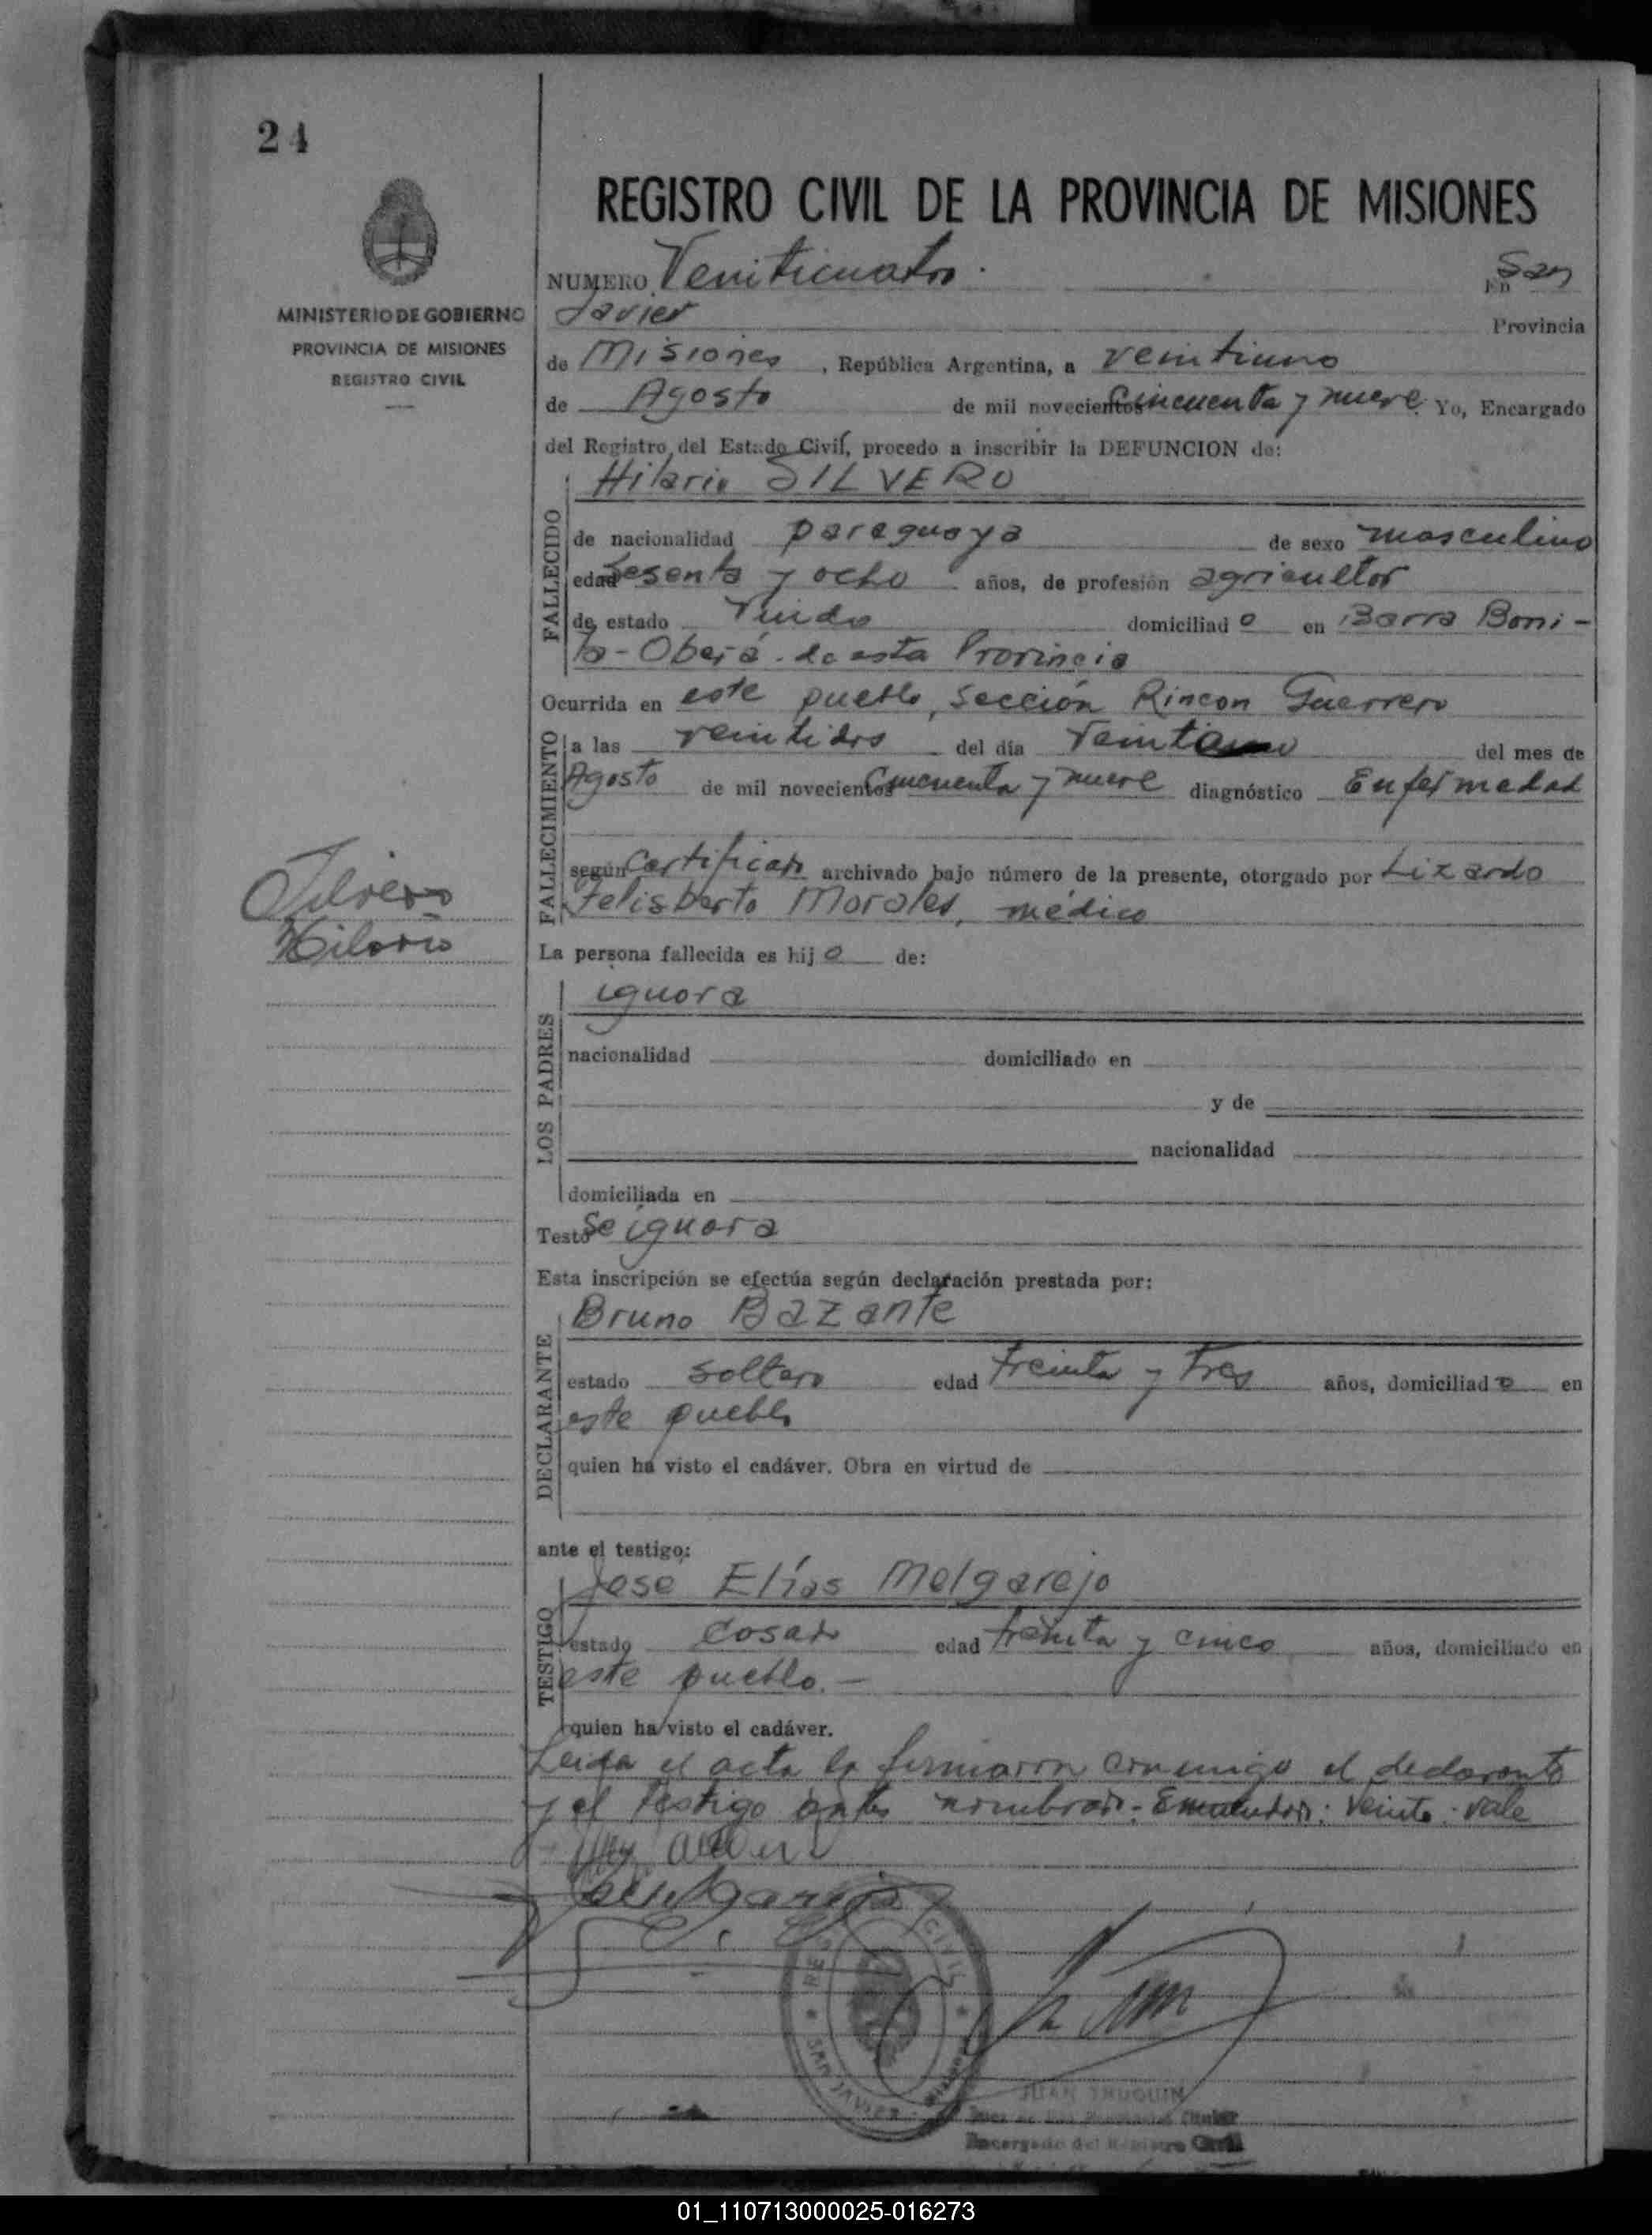 24
MINISTERIO DE GOBIERNO
PROVINCIA DE MISIONES
REGISTRO CIVIL
REGISTRO CIVIL DE LA PROVINCIA DE MISIONES
NUMERO Veinticuatro. En San
Javier Provincia
de Misiones, República Argentina, a veintiuno
de Agosto de mil novecientos Cincuenta y nueve Yo, Encargado
del Registro del Estado Civil, procedo a inscribir la DEFUNCION de:
FALLECIDO
Hilario SILVERO
de nacionalidad paraguaya de sexo masculino
edad Sesenta y ocho años, de profesión agricultor
de estado Viudo domiciliado en Barra Boni-
ta - Oberá - de esta Provincia
Ocurrida en este pueblo, Sección Rincon Guerrero
FALLECIMIENTO
a las veintidos del día del mes de
Agosto de mil novecientos Cincuenta y nueve diagnóstico Enfermedad
según Certificado archivado bajo número de la presente, otorgado por Lizardo
Felisberto Morales, médico
Silvero
Hilario
La persona fallecida es hijo de:
LOS PADRES
ignora
nacionalidad domiciliado en
y de
nacionalidad
domiciliada en
Testó Se ignora
Esta inscripción se efectúa según declaración prestada por:
DECLARANTE
Bruno Bazante
estado soltero edad treinta y tres años, domiciliado en
este pueblo
quien ha visto el cadáver. Obra en virtud de
ante el testigo:
TESTIGO
Jose Elías Melgarejo
estado Casado edad treinta y cinco años, domiciliado en
este pueblo. -
quien ha visto el cadáver.
Leida el acta la firmaron conmigo el declarante
y el testigo antes nombrado. - Enmendado: Veinte: vale
REG CIVIL
SAN JAVIER
JUAN TRUQUIN
Encargado del Registro Civil
01_110713000025-016273